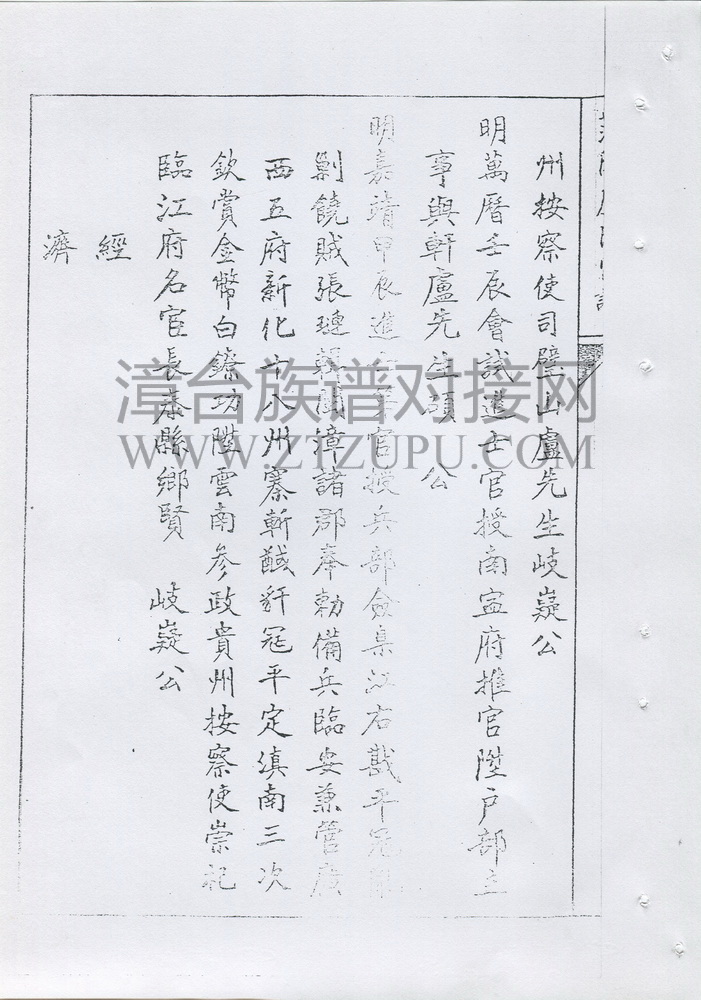 州按察使司璧山盧先生岐嶷公
明萬曆壬辰會試進士官授南寧府推官陞户部主
事與軒盧先生碩 公
明嘉靖甲辰進士 官授兵部僉臬江右戡平
剿饒賊張璉 閩漳諸郡奉勅備兵臨安兼管廣
西五府新化十八州寨斬馘 冦平定滇南三次
欽賞金幣白鏹功陞雲南參政貴州按察使崇祀
臨江府名宦長泰縣鄉賢 岐嶷公
經
濟
漳台族谱对接网
WWW.ZTZUPU.COM